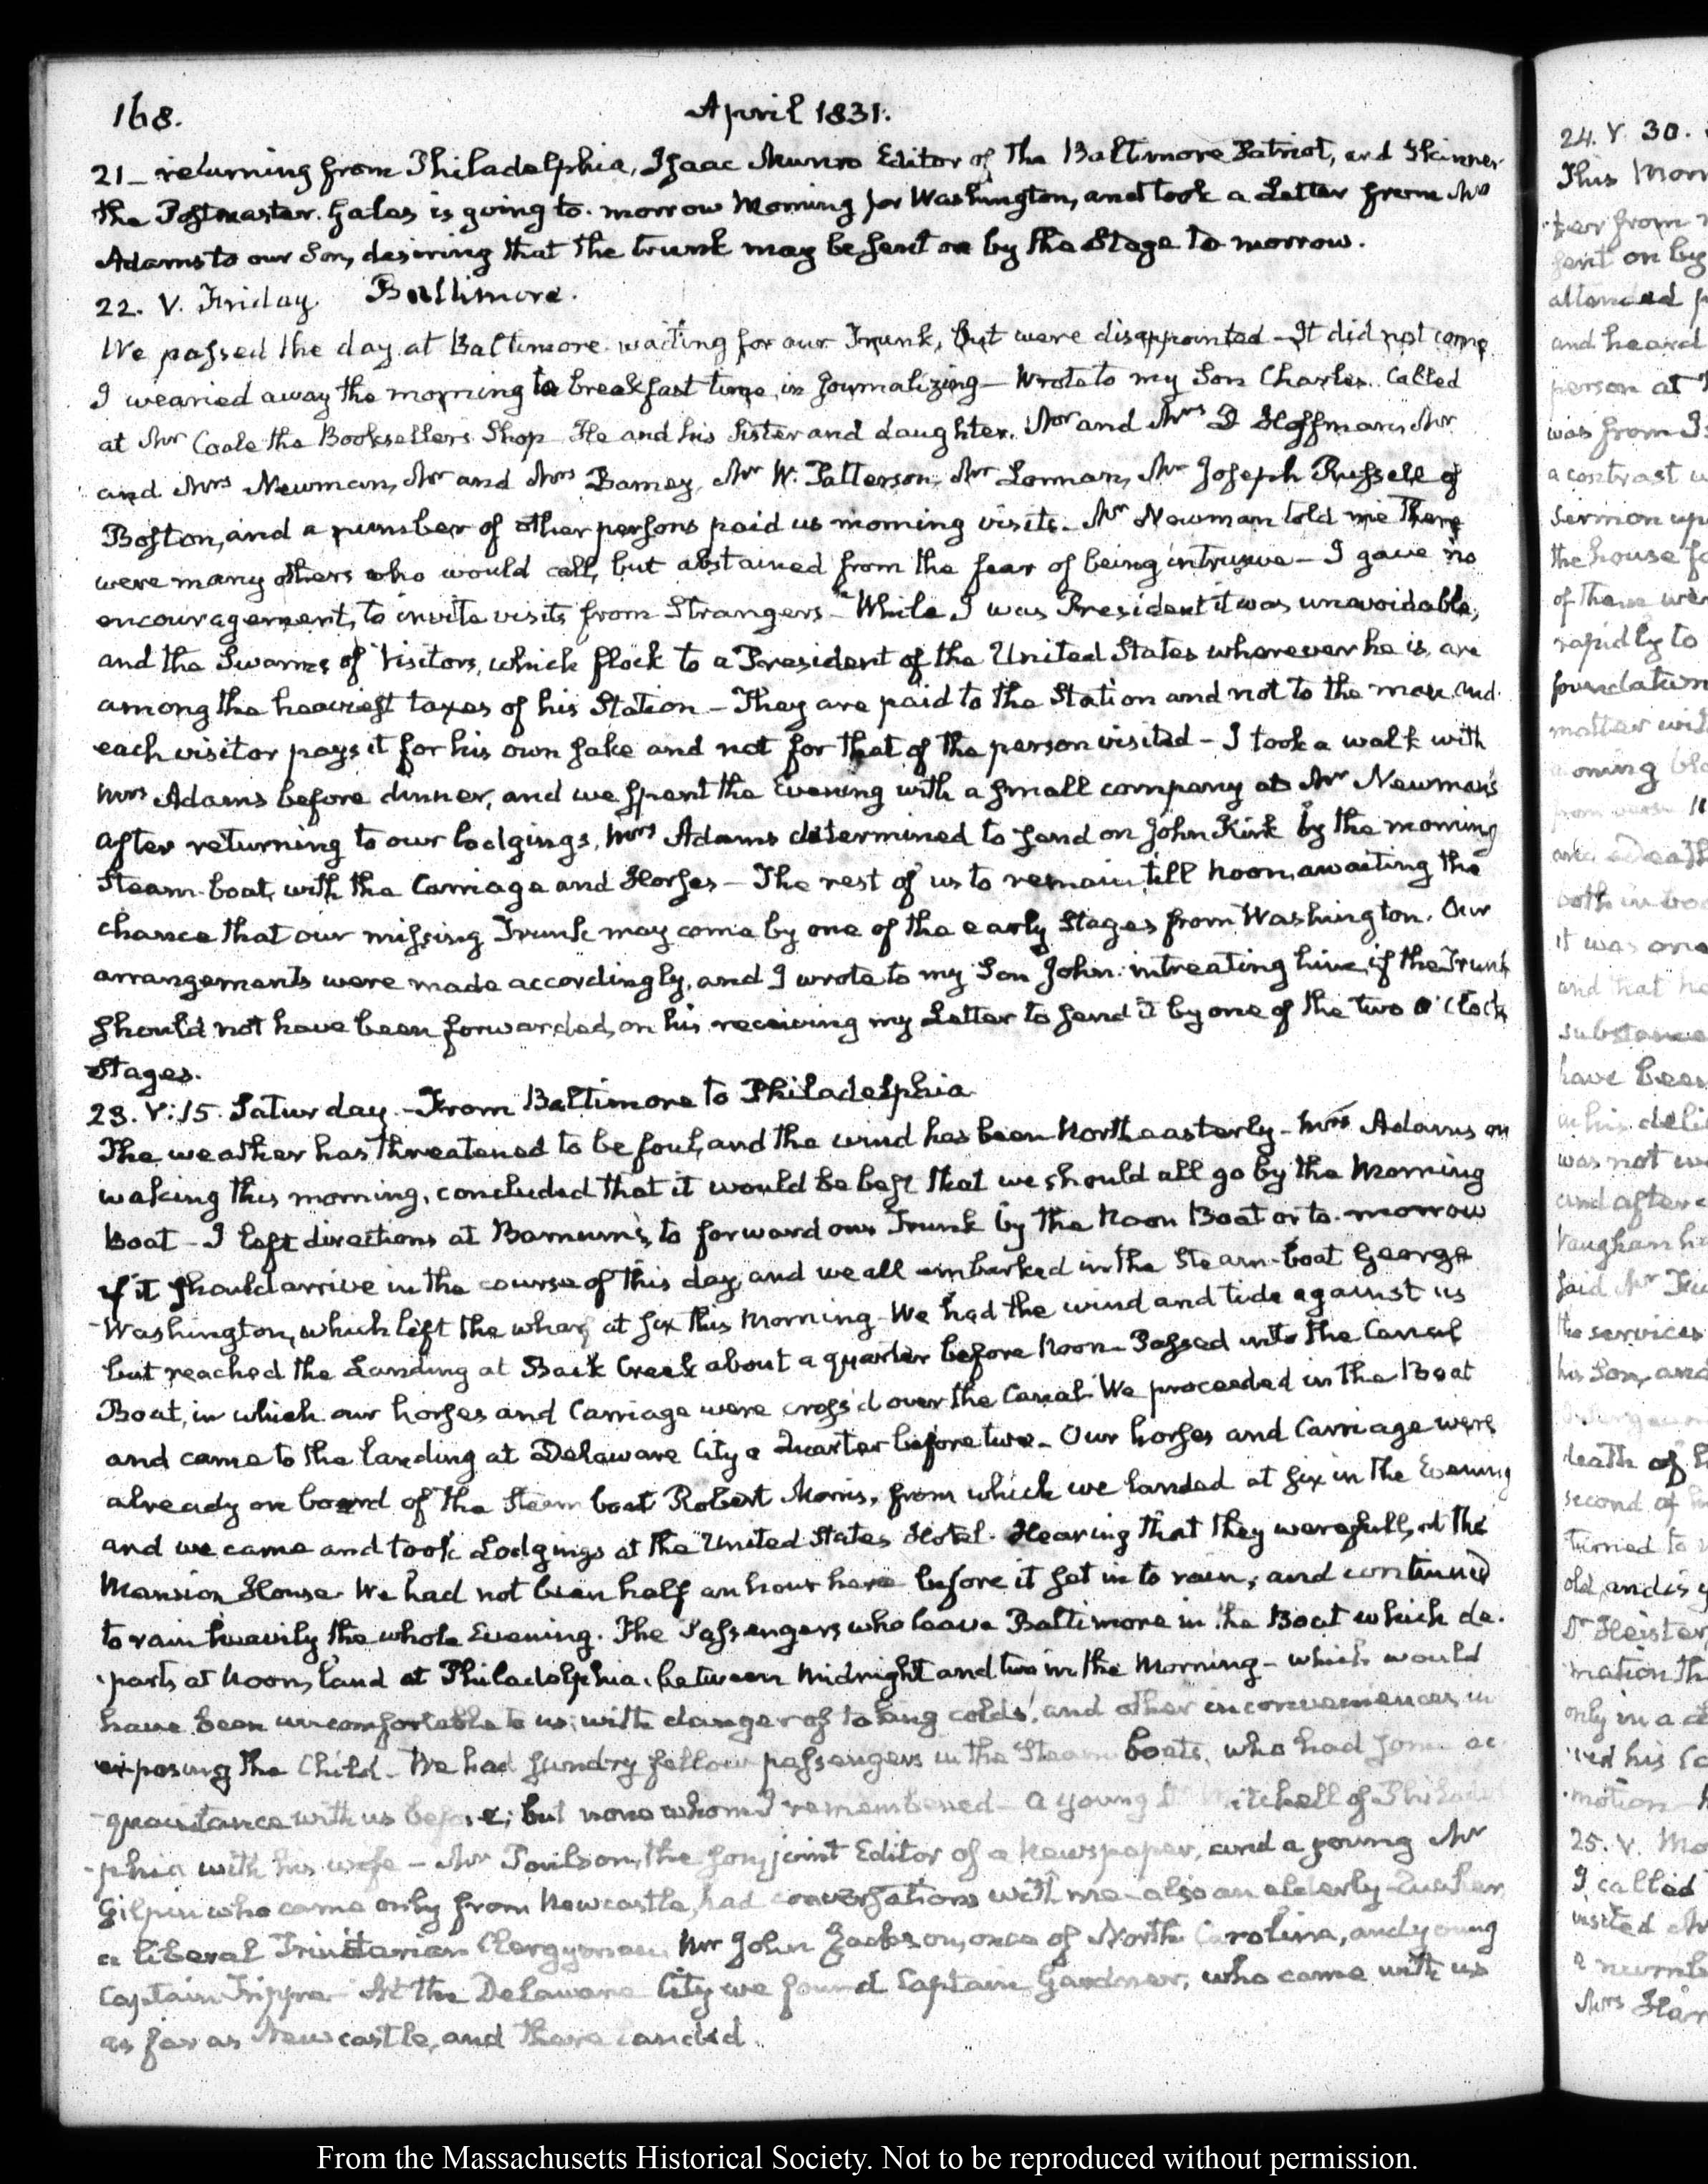 168. April 1831.
21 - returning from Philadelphia, Isaac Munro Editor of the Baltimore Patriot, and Skinner
the Postmaster. Gales is going to-morrow Morning for Washington, and took a Letter from Mrs
Adams to our Son, desiring that the trunk may be sent on by the Stage to morrow.
22. V. Friday. Baltimore.
We passed the day at Baltimore waiting for our Trunk, but were disappointed - It did not come
I wearied away the morning to breakfast time, in journalizing - Wrote to my Son Charles. Called
at Mr Coale the Booksellers Shop - He and his Sister and daughter, Mr and Mrs D Hoffman, Mr
and Mrs Newman, Mr and Mrs Barney, Mr W. Patterson, Mr Lorman, Mr Joseph Russell of
Boston, and a number of other persons paid us morning visits - Mr Newman told me There
were many others who would call, but abstained from the fear of being intrusive - I gave no
encouragement, to invite visits from Strangers - While I was President it was unavoidable,
and the Swarms of Visitors, which flock to a President of the United States wherever he is, are
among the heaviest taxes of his Station - They are paid to the Station and not to the man. And
each visitor pays it for his own sake and not for that of the person visited - I took a walk with
Mrs Adams before dinner, and we spent the Evening with a small company at Mr Newman's
After returning to our lodgings, Mrs Adams determined to send on John Kirk by the morning
Steam-boat, with the Carriage and Horses - The rest of us to remain till Noon, awaiting the
chance that our missing Trunk may come by one of the early Stages from Washington. Our
arrangements were made accordingly, and I wrote to my Son John intreating him, if the Trunk
should not have been forwarded, on his receiving my Letter to send it by one of the two o'Clock
Stages.
23. V:15. Saturday - From Baltimore to Philadelphia
The weather has threatened to be foul, and the wind has been Northeasterly - Mrs Adams on
waking this morning, concluded that it would be best that we should all go by the Morning
Boat - I left directions at Barnum's, to forward our Trunk by the Noon Boat or to-morrow
if it should arrive in the course of this day, and we all embarked in the Steam-boat George
Washington, which left the wharf at six this Morning - We had the wind and tide against us
but reached the Landing at Back Creek about a quarter before Noon - Passed into the Canal
Boat, in which our horses and Carriage were cross'd over the Canal - We proceeded in the Boat
and came to the landing at Delaware City a Quarter before two - Our horses and Carriage were
already on board of the Steam boat Robert Morris, from which we landed at six in the Evening
and we came and took Lodgings at the United States Hotel. Hearing that they were full, at the
Mansion House - We had not been half an hour here before it set in to rain, and continued
to rain heavily the whole Evening. The Passengers who leave Baltimore in the Boat which de-
-parts at Noon, land at Philadelphia, between Midnight and two in the Morning - which would
have been uncomfortable to us; with danger of taking colds, and other inconveniences in
exposing the Child - We had sundry fellow passengers in the Steam boats, who had some ac-
-quaintance with us before; but none whom I remembered - A young Dr Mitchell of Philadel-
-phia with his wife - Mr Poulson, the son, joint Editor of a Newspaper, and a young Mr
Gilpin who came only from Newcastle, had conversations with me - also an elderly Quaker,
a liberal Trinitarian Clergyman, Mr John Jackson, once of North Carolina, and young
Captain Trippe - At the Delaware City we found Captain Gardner, who came with us
as far as Newcastle, and there landed.